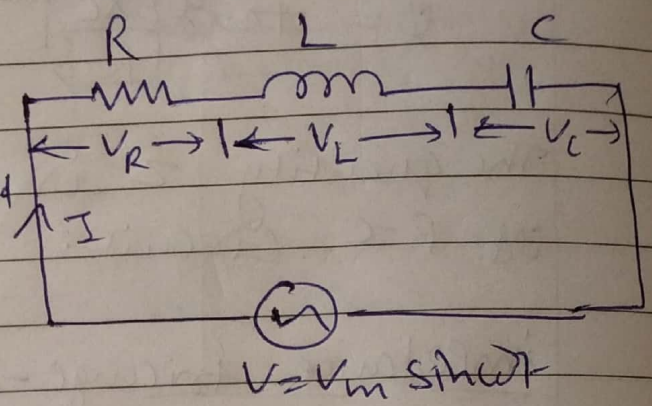 R L C
V_R V_L V_C
I
V = V_m sin ωt